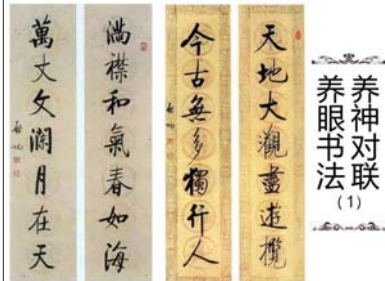 养神对联
养眼书法
(1)
天地大觀盡遊攬
今古無多獨行人
啟功
滿襟和氣春如海
萬丈文瀾月在天
啟功